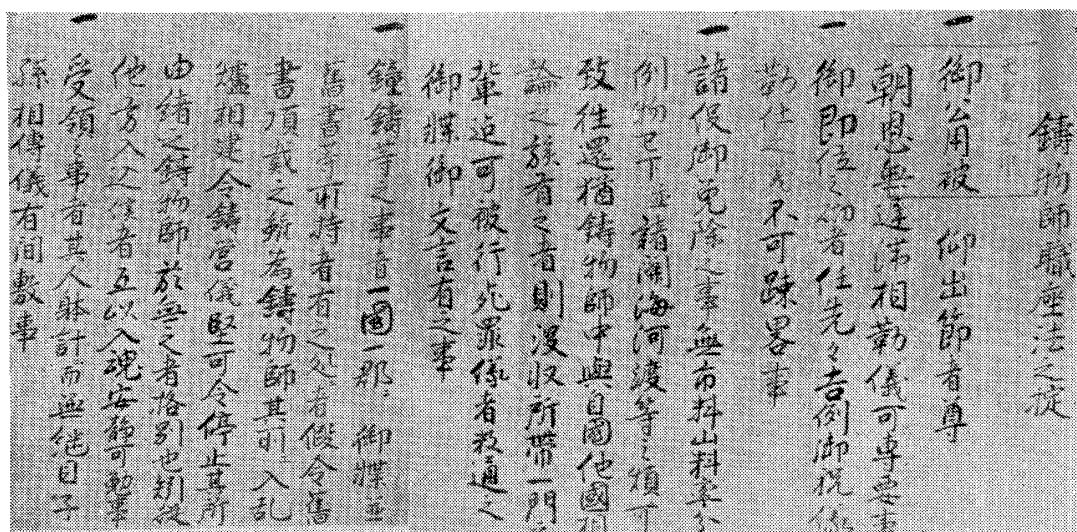 鋳物師職座法之掟
一 御公用被 仰出節者尊
朝恩無遅滞相勤儀可専要事
一 御即位之砌者任先々吉例御祝儀
勤仕之 不可疎畧事
一 諸役御免除之事無市料山料率分
例物已下 諸関海河渡等之煩可
致往還猶鋳物師中與自国他国相
論之族有之者則没収所帯一門
輩迄可被行死罪儀者被通之
御牒御文言有之事
一 鐘鋳等之事者一国一郡 御牒並
舊書等所持者有之処者假令舊
書頂戴之新為鋳物師其所江入乱
爐相建令鋳営儀堅可令停止其所
由緒之鋳物師於無之者格別也
他方入込候者互以入魂安静可勤事
一 受領之事者其人躰計而無継目子
孫相傳儀有間敷事